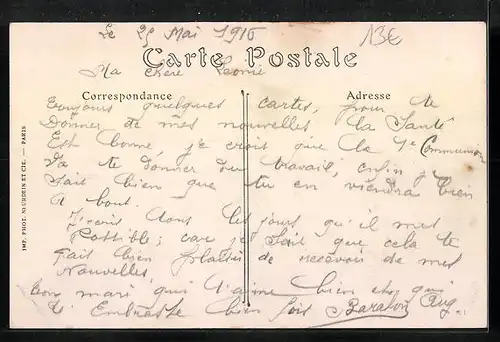 Le 25 Mai 1916
13€
Carte Postale
Ma chere Leonie
Correspondance
Adresse
Toujours quelques cartes, pour te
Donner de mes nouvelles la Santé
Est bonne je crois que la 1e Communion
Va te donner du travail, enfin je
Sait bien que tu en viendra bien
A bout.
J'ecris tous les jours qu'il mes
Possible; car je Sait que cela te
fait bien plaisir de recevoir de mes
Nouvelles
ton mari qui t'aime bien et qui
t'Embrasse bien fois Baraton Aug
IMP. PHOT. NEURDEIN ET CIE. — PARIS